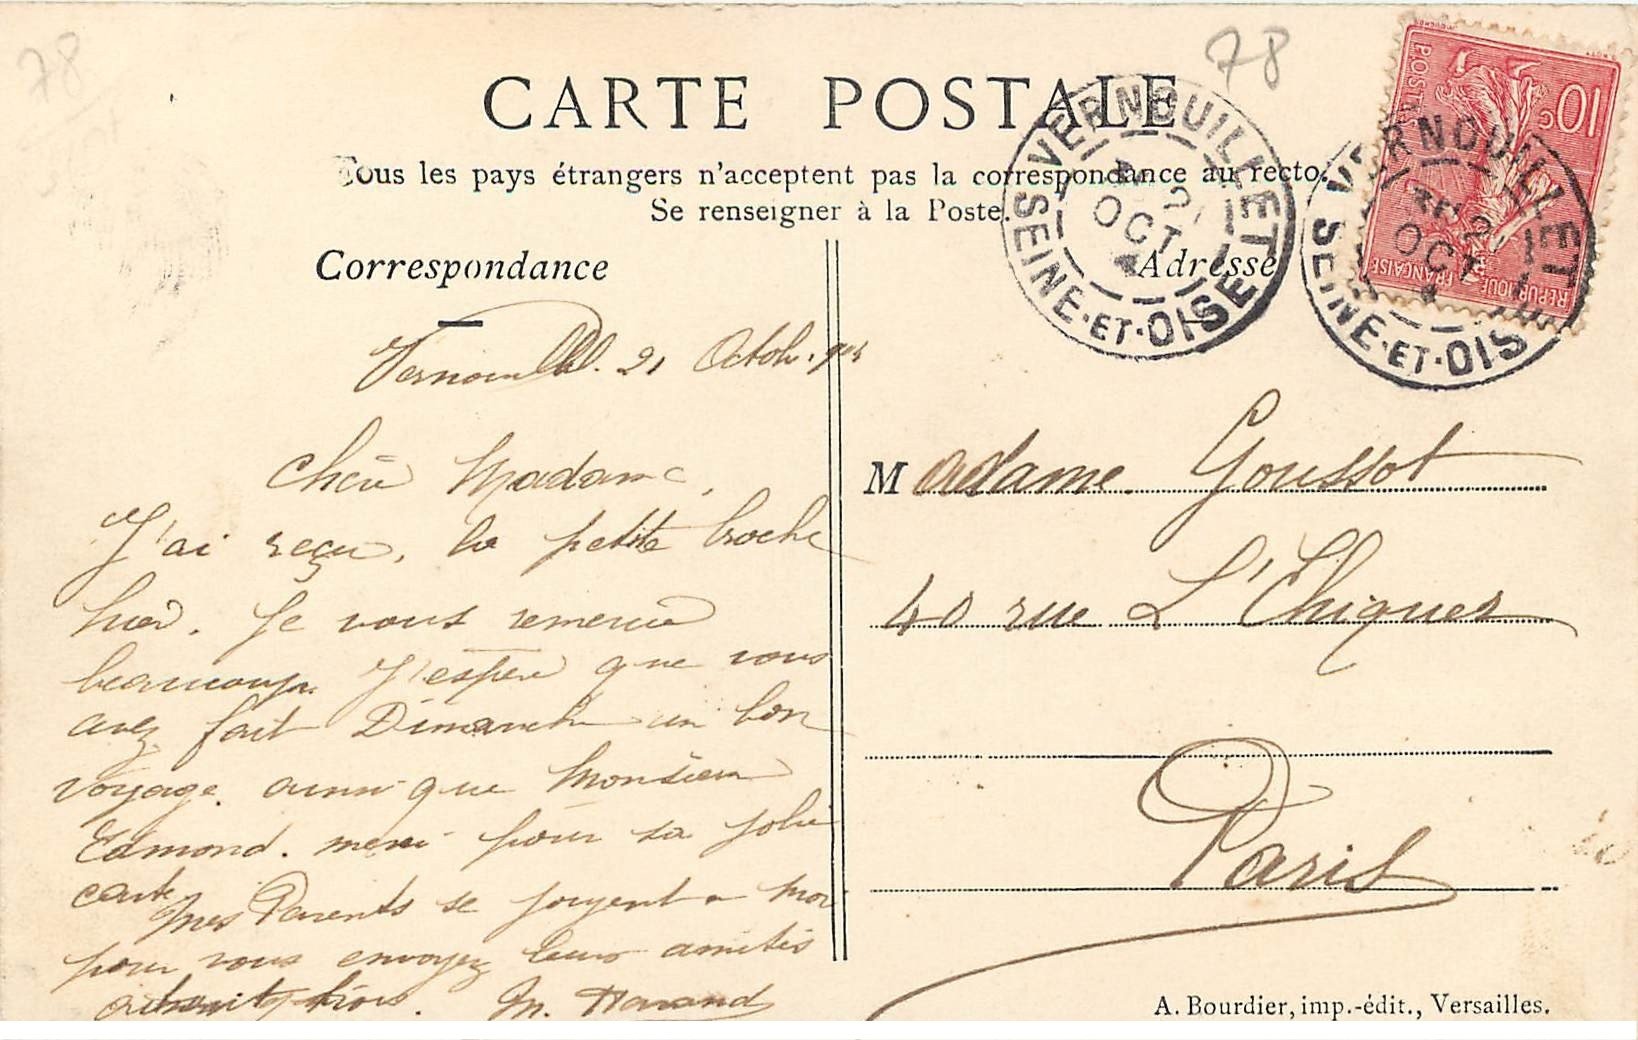 78
78
CARTE POSTALE
Tous les pays étrangers n'acceptent pas la correspondance au recto.
Se renseigner à la Poste.
Correspondance
Adresse
VERNOUILLET
21
OCT
SEINE-ET-OISE
VERNOUILLET
OCT
SEINE-ET-OISE
10 c
POSTES
REPUBLIQUE FRANÇAISE
Vernouillet. 21 Octob.
Chère Madame,
J'ai reçu, la petite broche
hier. Je vous remercie
beaucoup. J'espère que vous
avez fait Dimanche un bon
voyage. ainsi que Monsieur
Edmond. merci pour sa jolie
carte
Mes Parents se joignent a moi
pour vous envoyez leurs amitiés
M.
Madame Goussot
40 rue L'Echiquier
Paris
A. Bourdier, imp.-édit., Versailles.